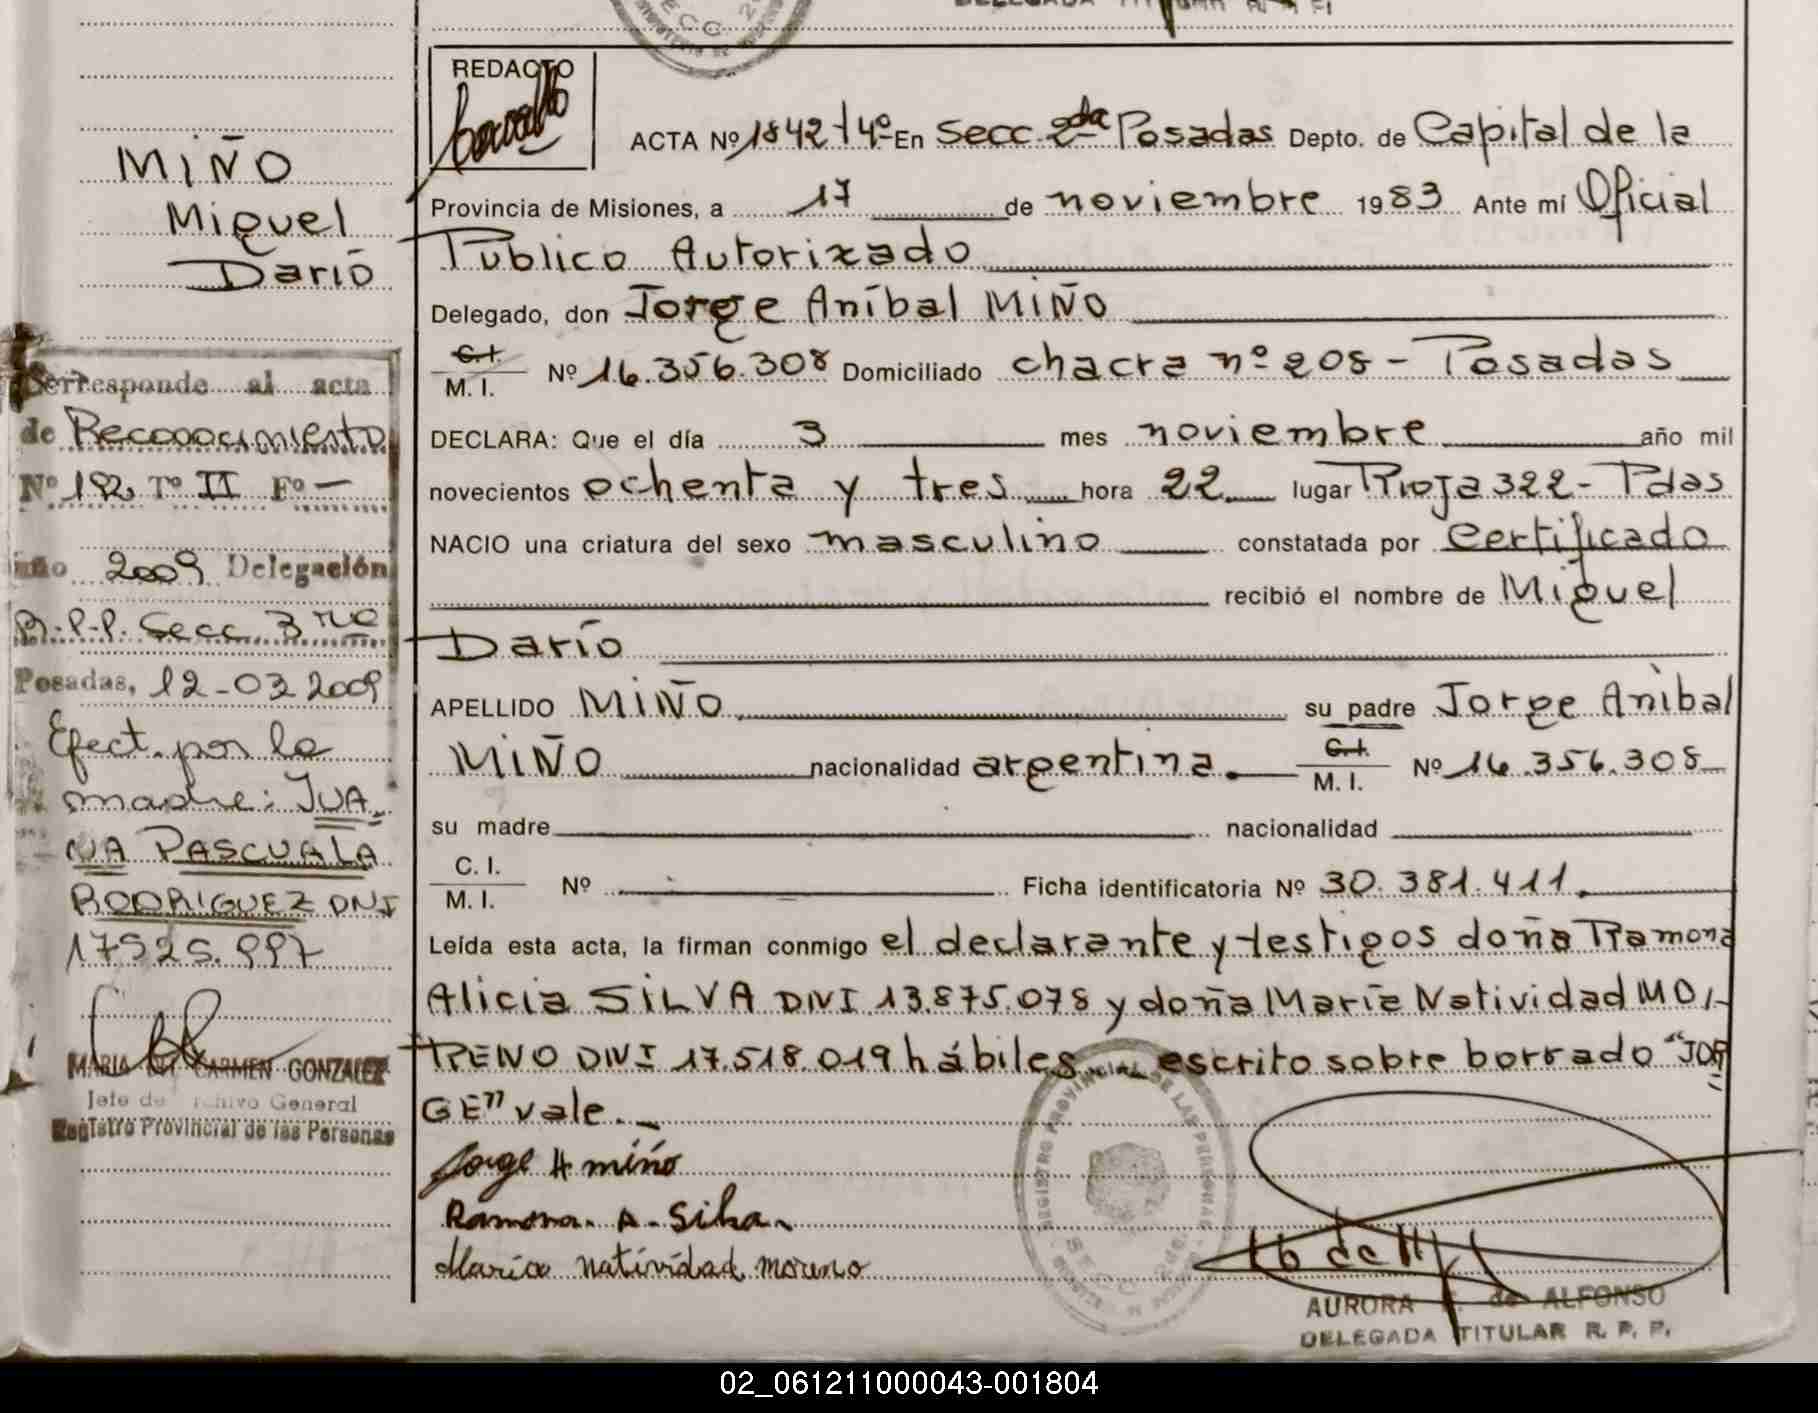 MIÑO
Miguel
Darío
Corresponde al acta
de Reconocimiento
Nº 192 Tº II Fº —
año 2009 Delegación
R.P.P. Secc. 3ra
Posadas, 12-03-2009
Efect. por la
madre: JUA
NA PASCUALA
RODRIGUEZ DNI
MARIA DEL CARMEN GONZALEZ
Jefe de Archivo General
Registro Provincial de las Personas
REDACTO
ACTA Nº 1842 tº 4º En Secc. 2da Posadas Depto. de Capital de la
Provincia de Misiones, a 17 de noviembre 1983 Ante mí Oficial
Publico Autorizado
Delegado, don Jorge Aníbal MIÑO
C.I.
M. I. Nº 16.356.308 Domiciliado chacra nº 208 - Posadas
DECLARA: Que el día 3 mes noviembre año mil
novecientos ochenta y tres hora 22 lugar Rioja 322 - Pdas
NACIO una criatura del sexo masculino constatada por Certificado
recibió el nombre de Miguel
Darío
APELLIDO MIÑO su padre Jorge Aníbal
MIÑO nacionalidad argentina. C.I. M. I. Nº 16.356.308
su madre nacionalidad
C. I.
M. I. Nº Ficha identificatoria Nº 30.381.411.
Leída esta acta, la firman conmigo el declarante y testigos doña Ramona
Alicia SILVA DNI 13.875.078 y doña María Natividad MO
RENO DNI 17.518.019 hábiles escrito sobre borrado "JOR
GE" vale.
Jorge A miño
Ramona A. Silva
María natividad moreno
REGISTRO PROVINCIAL DE LAS PERSONAS
SECC. 2da.
AURORA de ALFONSO
DELEGADA TITULAR R. P. P.
02_061211000043-001804